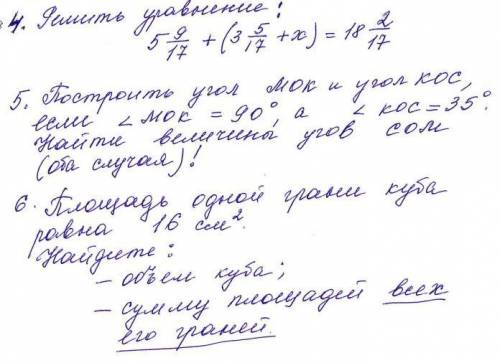 4. Решить уравнение!
5 9/17 + (3 5/17 + x) = 18 2/17
5. Построить угол МОК и угол КОС,
если ∠МОК = 90°, а ∠КОС = 35°.
Найти величины угов СОМ
(оба случая)!
6. Площадь одной грани куба
равна 16 см².
Найдите:
– объем куба;
– сумму площадей всех
его граней.